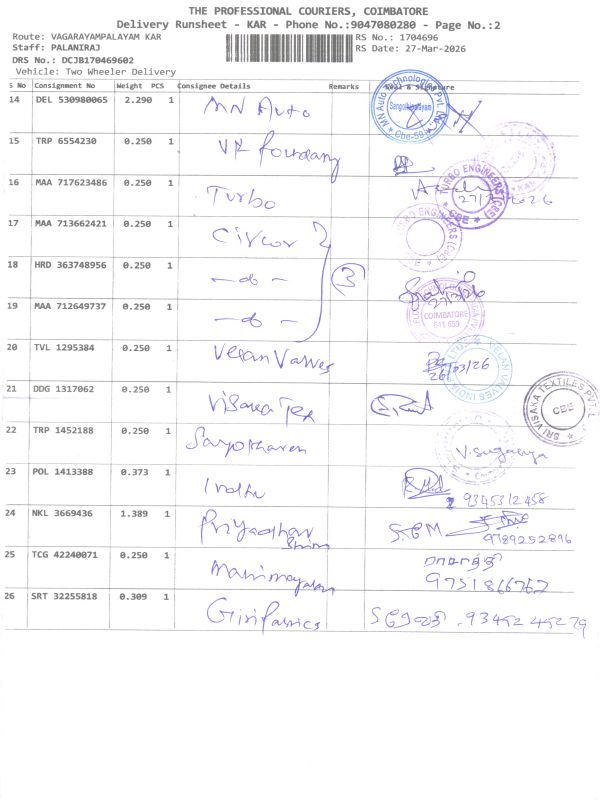 THE PROFESSIONAL COURIERS, COIMBATORE
Delivery Runsheet - KAR - Phone No.:9047080280 - Page No.:2
Route: VAGARAYAMPALAYAM KAR RS No.: 1704696
Staff: PALANIRAJ RS Date: 27-Mar-2026
DRS No.: DCJB170469602
Vehicle: Two Wheeler Delivery
S No Consignment No Weight PCS Consignee Details Remarks Seal & Signature
14 DEL 530980065 2.290 1 MN Auto
MN Auto Technologies Pvt. Ltd.
15 TRP 6554230 0.250 1 VR foundary
16 MAA 717623486 0.250 1 Turbo
TURBO ENGINEERS (CBE)
CBE
17 MAA 713662421 0.250 1 Circor
TURBO ENGINEERS (CBE)
18 HRD 363748956 0.250 1 —do— 3
19 MAA 712649737 0.250 1 —do—
COIMBATORE
641 659
20 TVL 1295384 0.250 1 Velan Valves
VELAN VALVES INDIA
21 DDG 1317062 0.250 1 Visaka Tex
SRI VISAKA TEXTILES PVT. L
CBE
22 TRP 1452188 0.250 1 V. Suganya
23 POL 1413388 0.373 1
9345312458
24 NKL 3669436 1.389 1
9789252896
25 TCG 42240071 0.250 1
9751866762
26 SRT 32255818 0.309 1 Giri fabrics 9345245279